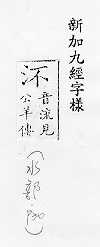 新加九經字樣
音流見
公羊傳
（水部